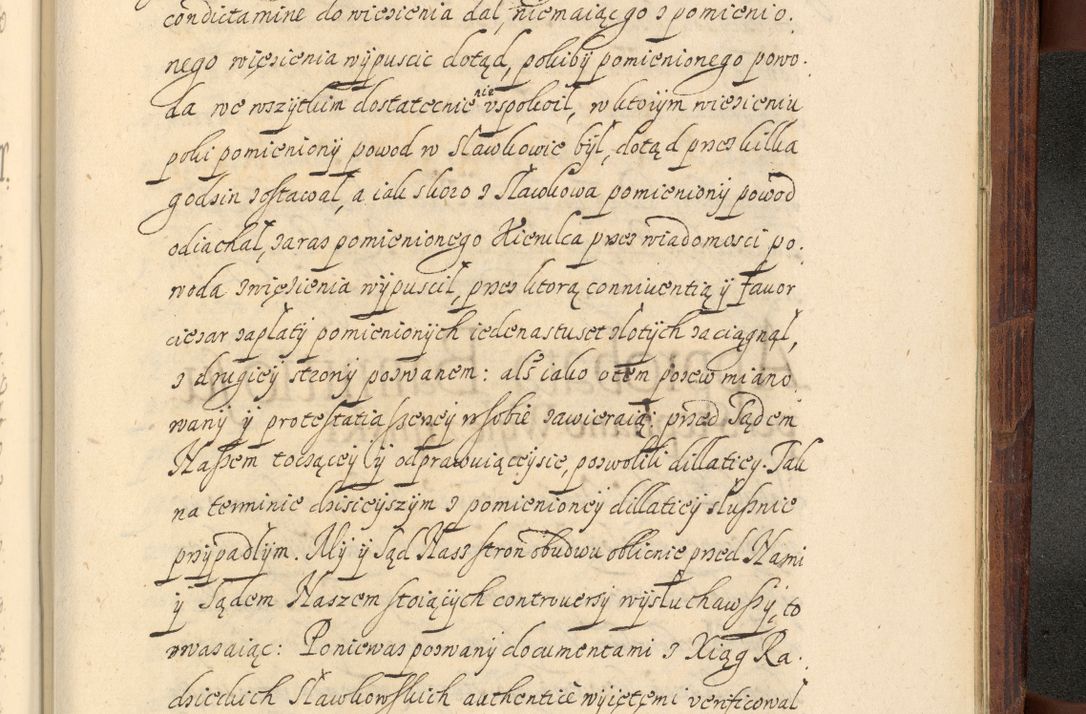 condictamine do więzienia dał, niemaiącgo z pomienio.
nego więzienia wypuscic dotąd, pokiby pomienionego powo.
da we wszytkim dostatecnie nie vspokoił, w ktoiym wiezieniu
poki pomieniony powod w Sławkowie był, dotąd przez kilka
godzin zostawał, a iak skoro z Sławkowa pomieniony powod
odiachał, zaraz pomienionego Kierulca przez wiadomosci po.
woda zwięzienia wypuscił, przez ktorą conniventią y favor
ciezar zapłaty pomienionych iedenastuset złotych zaciągnął,
z drugiey strony pozwanem: ale iako o tem pozew miano
wany y protestatia szerzey w sobie zawieraią przed Sądem
Naszem toczącey y odprawuiąceysie, pozwolili dillatiey. Tak
na terminie dzisieyszym z pomienioney dillatiey słusznie
przypadłym. My y Sąd Nasz stron obudwu oblicnie przed Nami
y Sądem Naszem stoiących controversy wysłuchawszy, to
zwazaiąc: Poniewaz pozwany documentami z Xiąg Ra.
dzieckich Sławkowskich authentice wyiętemi verificował